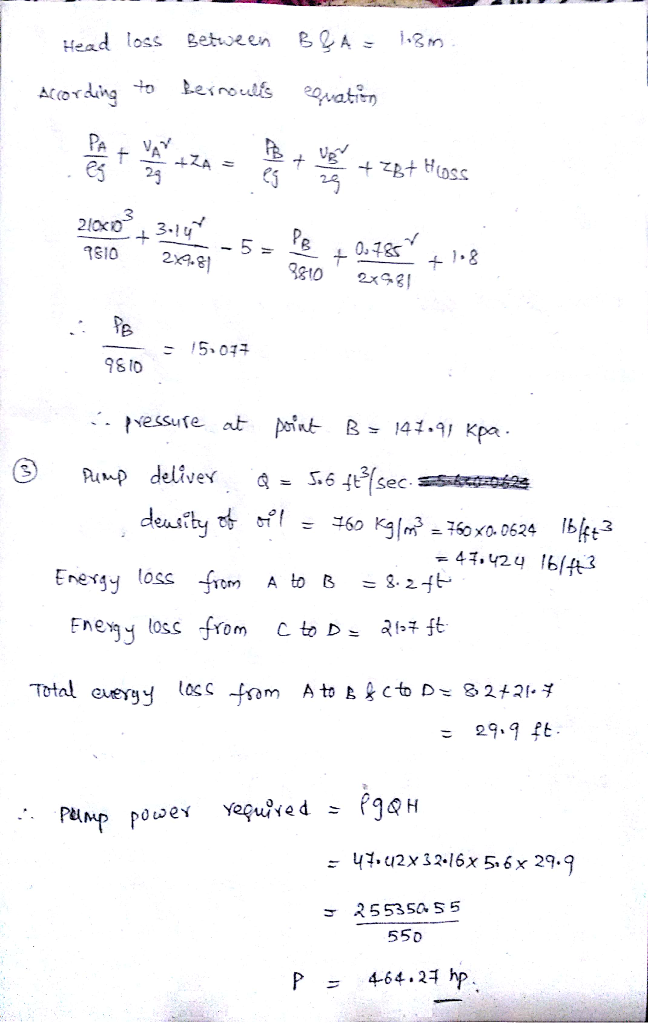 Head loss Between B & A = 1.8m.
According to Bernoulli's equation
PA/ρg + VA²/2g + ZA = PB/ρg + VB²/2g + ZB + Hloss
210x10³/9810 + 3.14²/2x9.81 - 5 = PB/9810 + 0.785²/2x9.81 + 1.8
∴ PB/9810 = 15.077
∴ pressure at point B = 147.91 Kpa.
③ Pump deliver Q = 5.6 ft³/sec.
density of oil = 760 Kg/m³ = 760x0.0624 lb/ft3
= 47.424 lb/ft3
Energy loss from A to B = 8.2 ft
Energy loss from C to D = 21.7 ft
Total energy loss from A to B & C to D = 8.2+21.7
= 29.9 ft.
∴ Pump power required = ρgQH
= 47.42x32.16x5.6x29.9
= 255350.55/550
P = 464.27 hp.